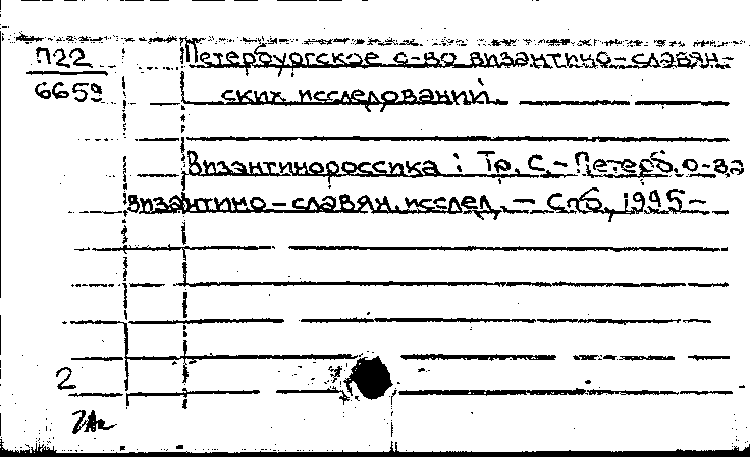 П22
665а
Петербургское о-во византино-славян-
ских исследований.
Византинороссика : Тр. С.-Петерб. о-ва
византино-славян. исслед. — Спб, 1995-
2